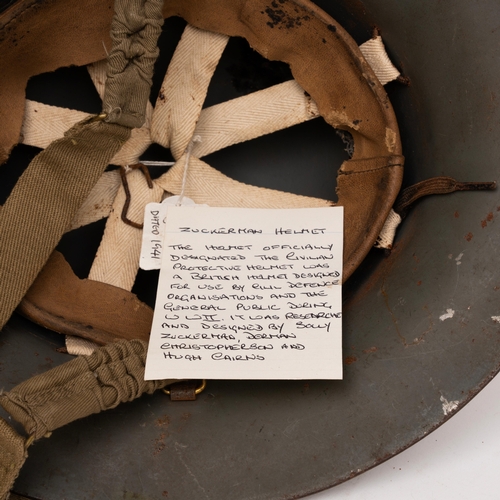 DATED 1941
ZUCKERMAN HELMET
THE HELMET OFFICIALLY
DESIGNATED THE CIVILIAN
PROTECTIVE HELMET WAS
A BRITISH HELMET DESIGNED
FOR USE BY CIVIL DEFENCE
ORGANISATIONS AND THE
GENERAL PUBLIC DURING
WWII. IT WAS RESEARCHED
AND DESIGNED BY SOLLY
ZUCKERMAN, DERMAN
CHRISTOPHERSON AND
HUGH CAIRNS